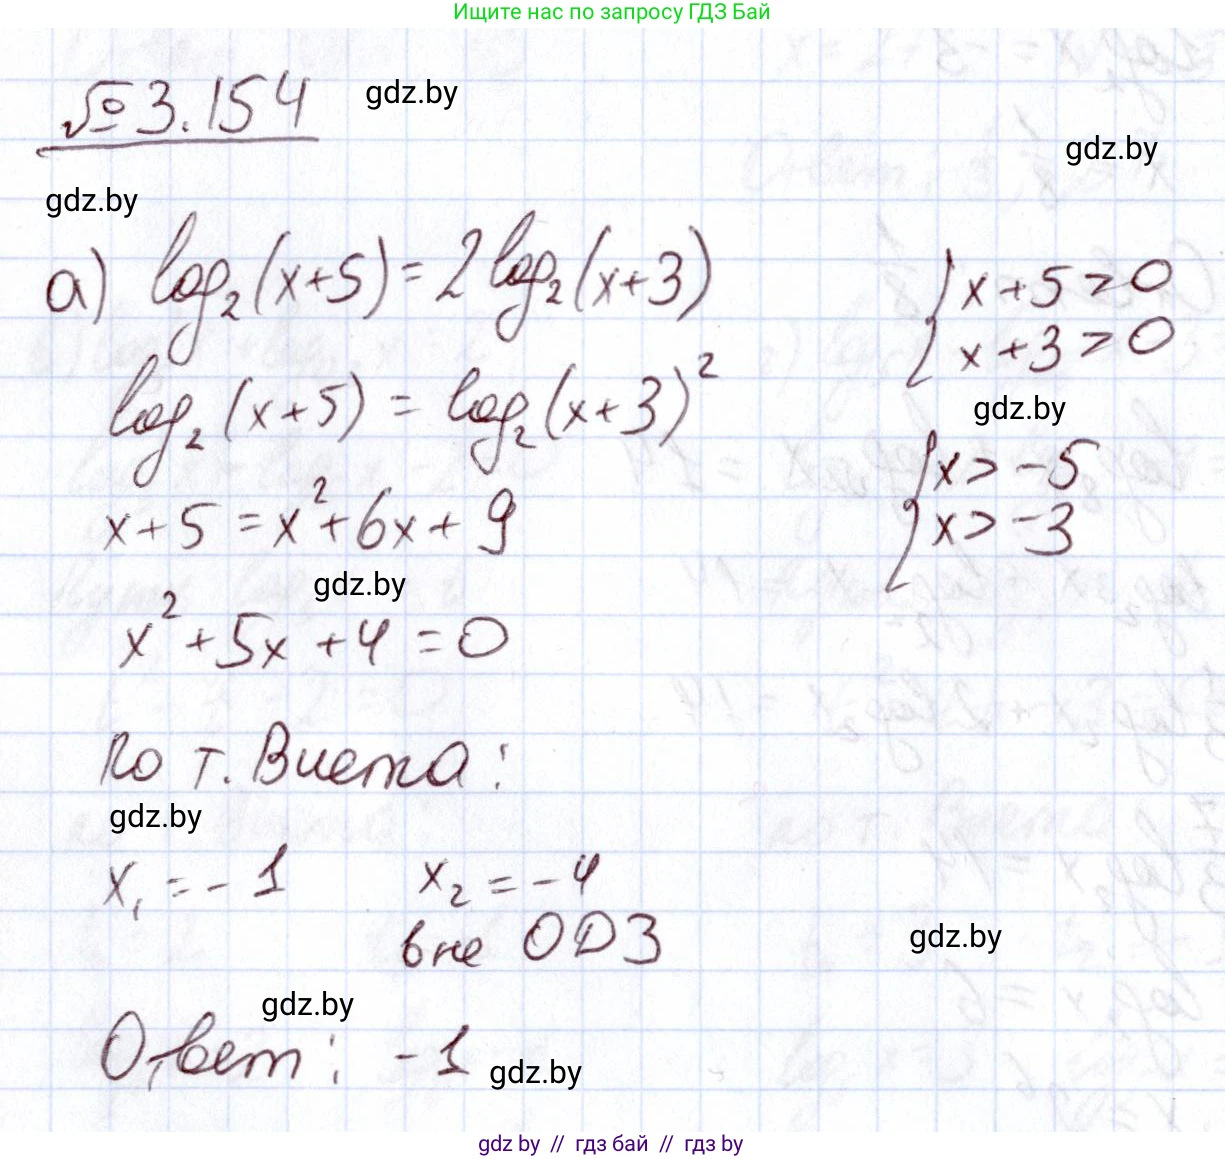 Ищите нас по запросу ГДЗ Бай
№ 3.154 gdz.by
gdz.by
gdz.by
а) log₂(x+5) = 2log₂(x+3)
{ x+5>0
x+3>0
log₂(x+5) = log₂(x+3)²
gdz.by
{ x>-5
x>-3
x+5 = x²+6x+9
gdz.by
x²+5x+4=0
По т. Виета:
gdz.by
x₁=-1 x₂=-4
вне ОДЗ
gdz.by
gdz.by
Ответ: -1 gdz.by
gdz by // гдз бай // гдз by